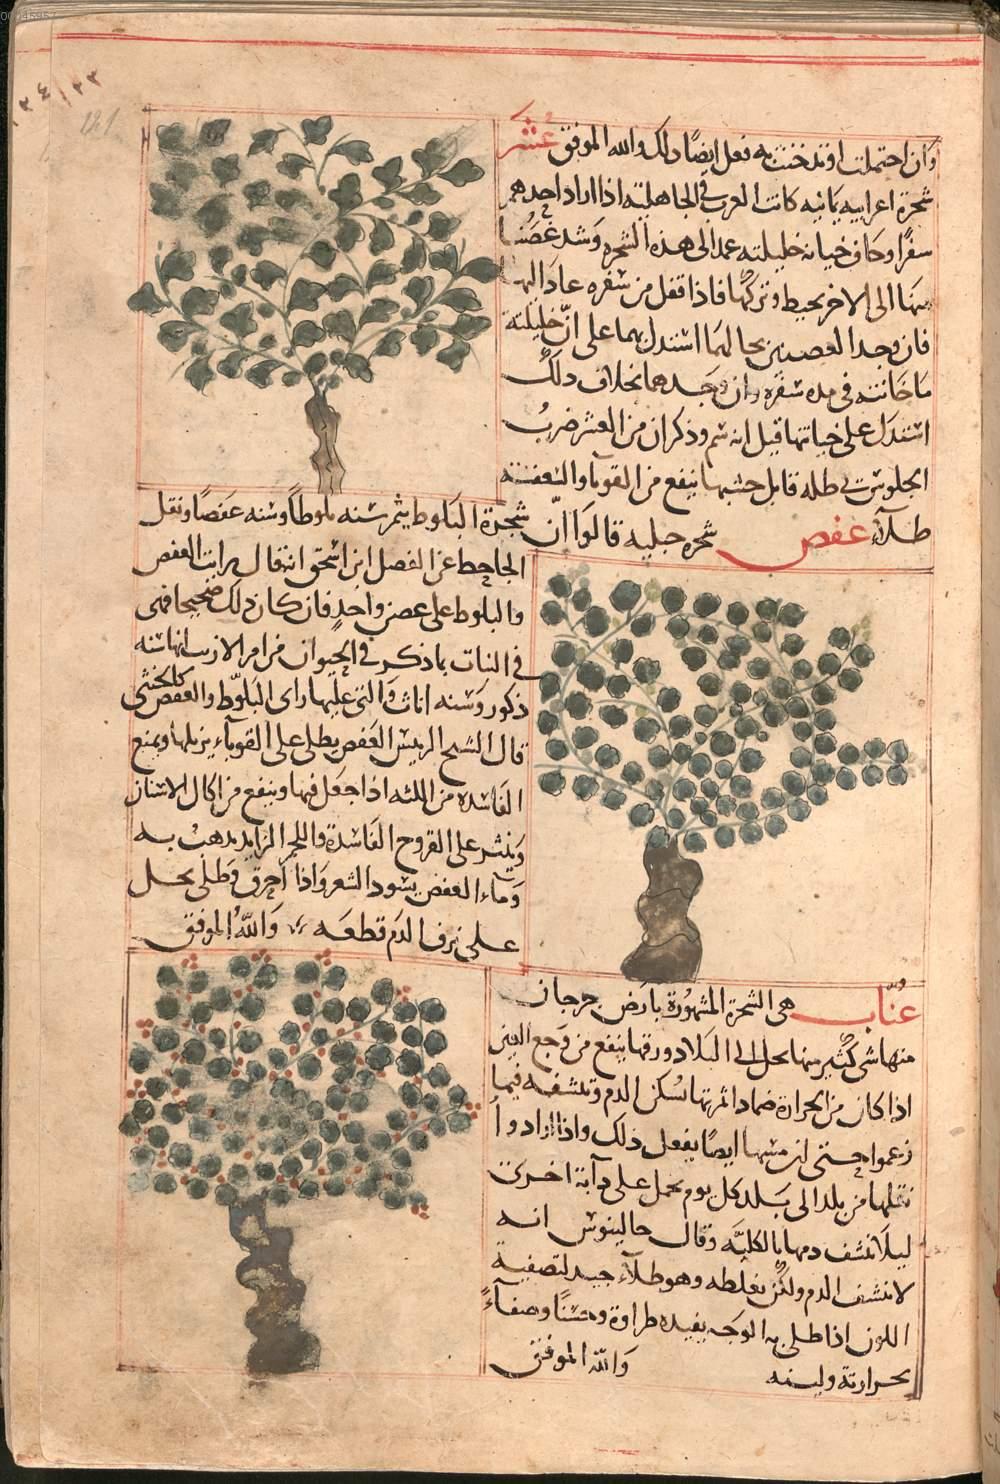 وان احتملت او تدخنت به فعل ايضا ذلك والله الموفق عشر
شجرة اعرابيه يمانيه كانت العرب في الجاهلية اذا اراد احدهم
سفرا وخاف خيانه خليلته عمد الى هذه الشجره وشد غصنا
منها الى الاخر بخيط وتركها فاذا قفل من سفره عاد اليها
فان وجد الغصنين بحالهما استدل بهما على ان خليلته
ما خانته في مده سفره وان وجدهما بخلاف ذلك
استدل على خيانتها قيل انه سم وذكر ان من العشر ضرب
الجلوس في ظله قاتل ينفع من القوبا والسعفه
طلاء عفص شجره جبليه قالوا ان
شجرة البلوط يثمر سنه بلوطا وسنه عفصا ونقل
الجاحظ عن الفضل ابن اسحق انه قال رايت العفص
والبلوط على غصن واحد فان كان ذلك صحيحا فهى
في النبات ما ذكر في الحيوان من امر الارنب انها سنه
ذكور وسنه اناث والتى عليها راى البلوط والعفص كالخنثى
قال الشيخ الرييس العفص يطلى على القوباء يزيلها ويمنع
الفاسده من اللثه اذا جعل فيها وينفع من اكال الاسنان
وينثر على القروح الفاسدة واللحم الزايد يذهب به
وماء العفص يسود الشعر واذا احرق وطلى بخل
على نزف الدم قطعه والله الموفق
عناب هى الشجرة المشهورة بارض جرجان
منها شى كثير منها يحمل الى البلاد ورقها ينفع من وجع العين
اذا كان من الحرارة ضمادا ثمرتها تسكن الدم وتنشفه فيما
زعموا حتى ان مسها ايضا يفعل ذلك واذا ارادوا
نقلها من بلد الى بلد كل يوم تحمل على دابة اخرى
ليلا تنشف دمها بالكليه وقال جالينوس انه
لا تنشف الدم ولكن تغلظه وهو طلاء جيد لتصفية
اللون اذا طلى به الوجه يفيده طراوة وحسنا وصفاء
بحرارته ولينه والله الموفق